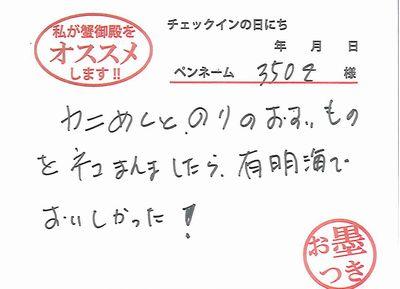 私が蟹御殿を
オススメ
します!!
チェックインの日にち
年 月 日
ペンネーム 350Z 様
カニめしと、のりのおすいもの
をネコまんましたら、有明海で
おいしかった!
お墨
つき